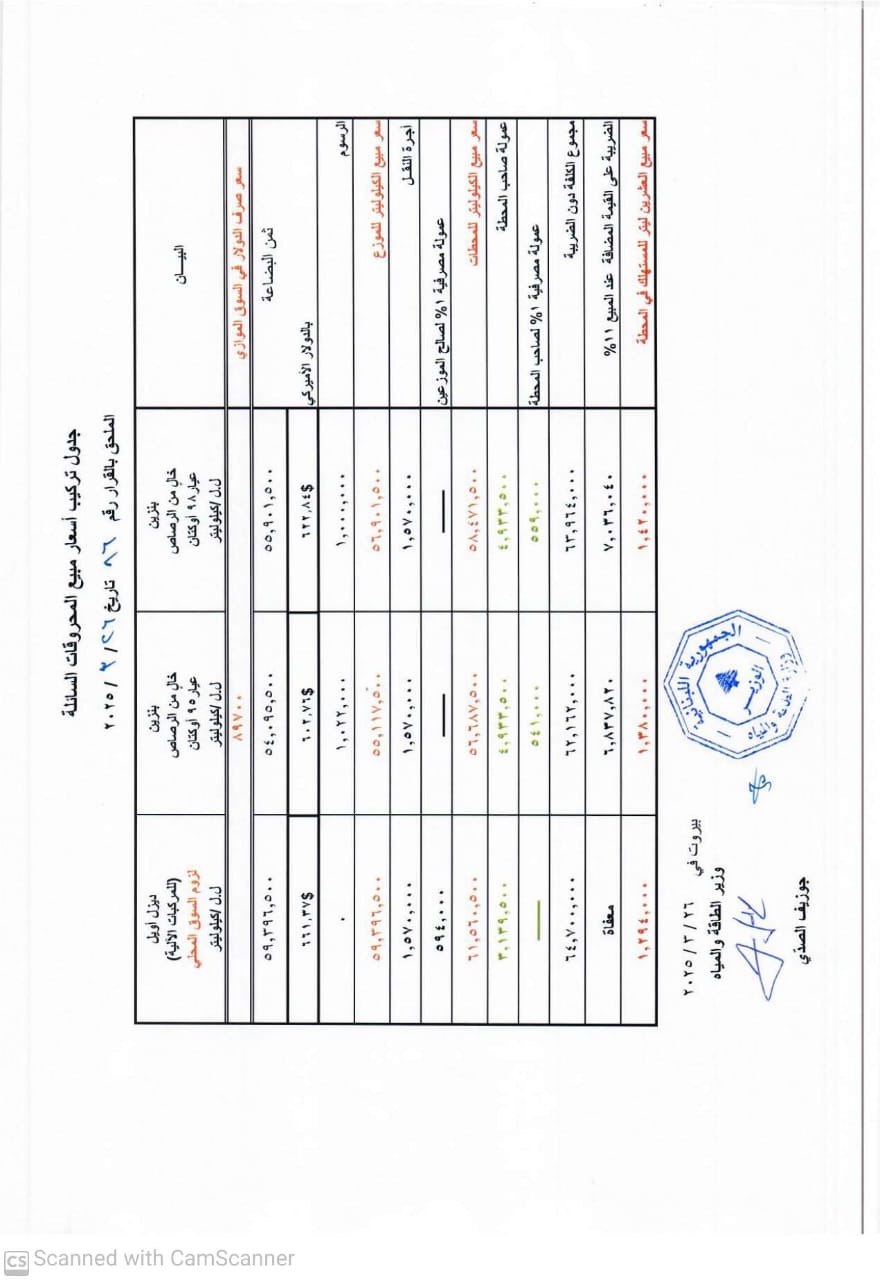 جدول تركيب أسعار مبيع المحروقات السائلة
الملحق بالقرار رقم ٨٦ تاريخ ٢٦/ ٣ /٢٠٢٥
البيـــان
بنزين
خالٍ من الرصاص
عيار ٩٨ أوكتان
ل.ل/كيلوليتر
بنزين
خالٍ من الرصاص
عيار ٩٥ أوكتان
ل.ل/كيلوليتر
ديزل أويل
(للمركبات الآلية)
لزوم السوق المحلي
ل.ل/كيلوليتر
سعر صرف الدولار في السوق الموازي ٨٩٧٠٠
ثمن البضاعة ٥٥,٩٠١,٥٠٠ ٥٤,٠٩٥,٥٠٠ ٥٩,٣٩٦,٥٠٠
بالدولار الأميركي ٦٢٢,٨٤$ ٦٠٢,٧٦$ ٦٦١,٣٧$
الرسوم ١,٠٠٠,٠٠٠ ١,٠٢٢,٠٠٠ ٠
سعر مبيع الكيلوليتر للموزع ٥٦,٩٠١,٥٠٠ ٥٥,١١٧,٥٠٠ ٥٩,٣٩٦,٥٠٠
أجرة النقـل ١,٥٧٠,٠٠٠ ١,٥٧٠,٠٠٠ ١,٥٧٠,٠٠٠
عمولة مصرفية ١% لصالح الموزعين — — ٥٩٤,٠٠٠
سعر مبيع الكيلوليتر للمحطات ٥٨,٤٧١,٥٠٠ ٥٦,٦٨٧,٥٠٠ ٦١,٥٦٠,٥٠٠
عمولة صاحب المحطة ٤,٩٣٣,٥٠٠ ٤,٩٣٣,٥٠٠ ٣,١٣٩,٥٠٠
عمولة مصرفية ١% لصاحب المحطة ٥٥٩,٠٠٠ ٥٤١,٠٠٠ —
مجموع الكلفة دون الضريبة ٦٣,٩٦٤,٠٠٠ ٦٢,١٦٢,٠٠٠ ٦٤,٧٠٠,٠٠٠
الضريبة على القيمة المضافة عند المبيع ١١% ٧,٠٣٦,٠٤٠ ٦,٨٣٧,٨٢٠ معفاة
سعر مبيع العشرين ليتر للمستهلك في المحطة ١,٤٢٠,٠٠٠ ١,٣٨٠,٠٠٠ ١,٢٩٤,٠٠٠
الجمهورية اللبنانية
الوزير
وزارة الطاقة والمياه
بيروت في ٢٦ / ٣ / ٢٠٢٥
وزير الطاقة والمياه
جوزيف الصدّي
CS Scanned with CamScanner